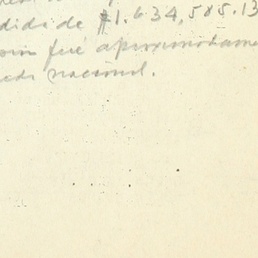 dida de $1.634,585.13
fué aproximadame
nacional.